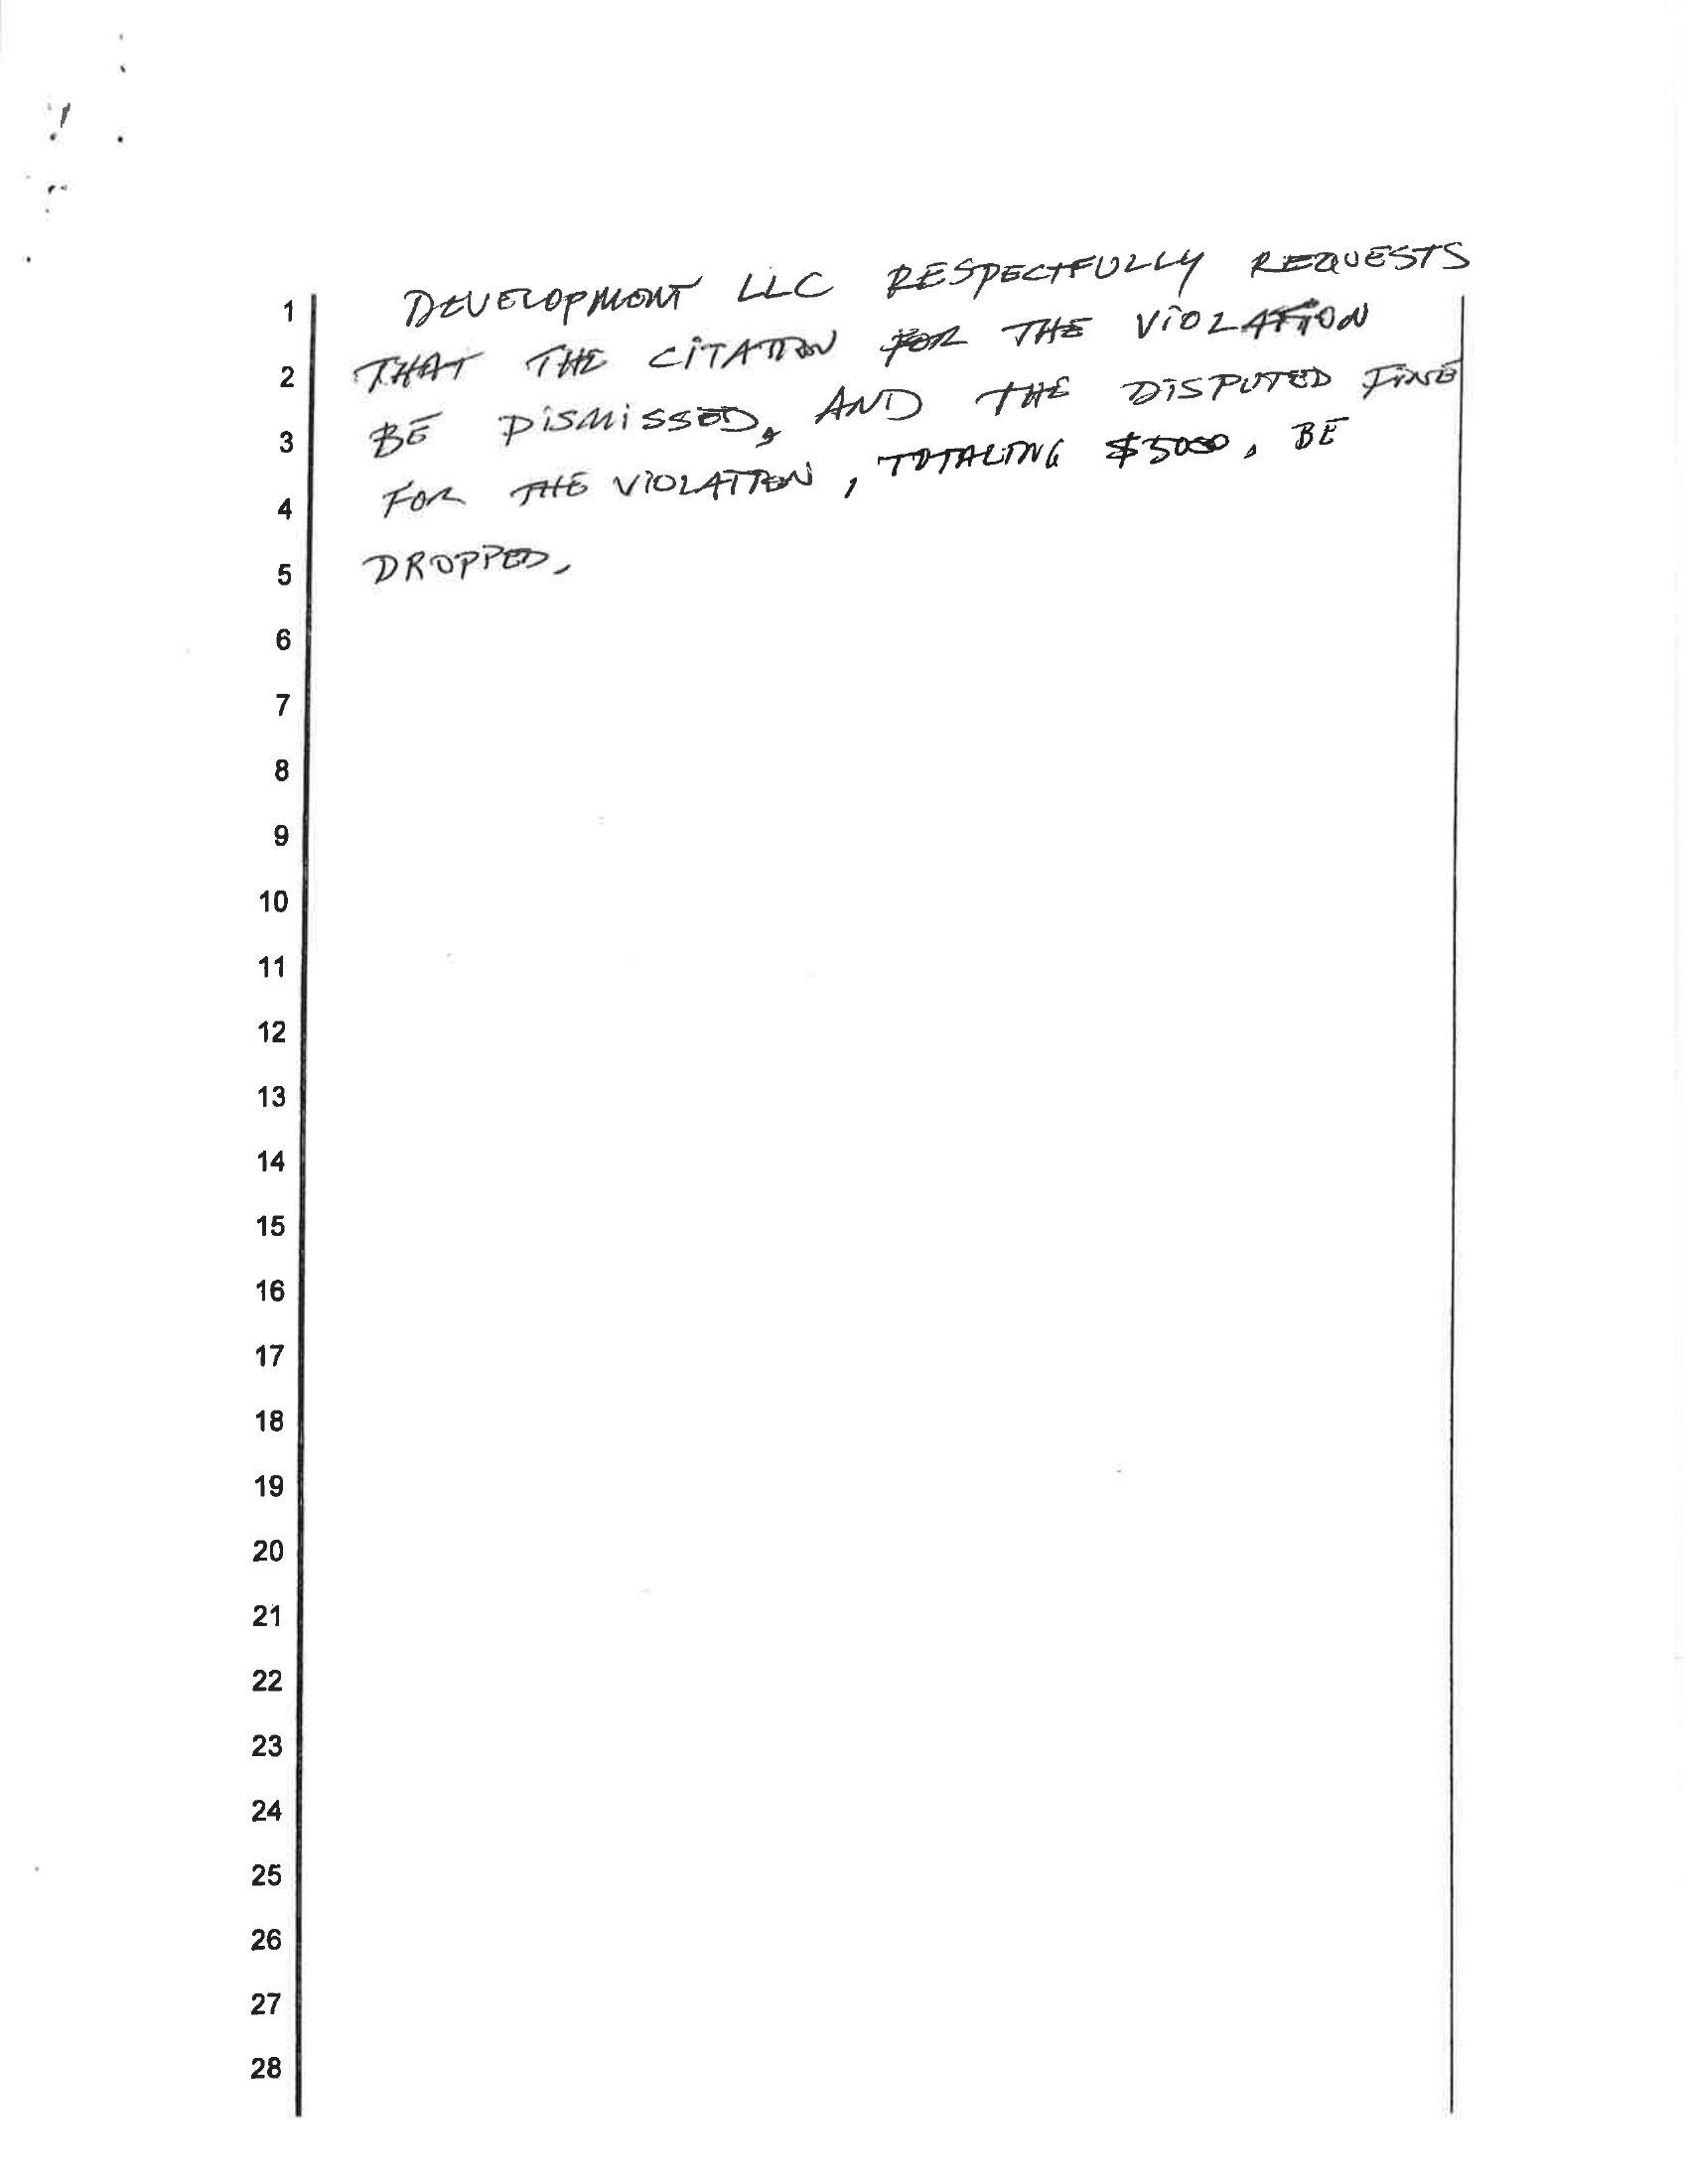 1 DEVELOPMENT LLC RESPECTFULLY REQUESTS
2 THAT THE CITATION FOR THE VIOLATION
3 BE DISMISSED, AND THE DISPUTED FINE
4 FOR THE VIOLATION, TOTALING $5000, BE
5 DROPPED.
6
7
8
9
10
11
12
13
14
15
16
17
18
19
20
21
22
23
24
25
26
27
28